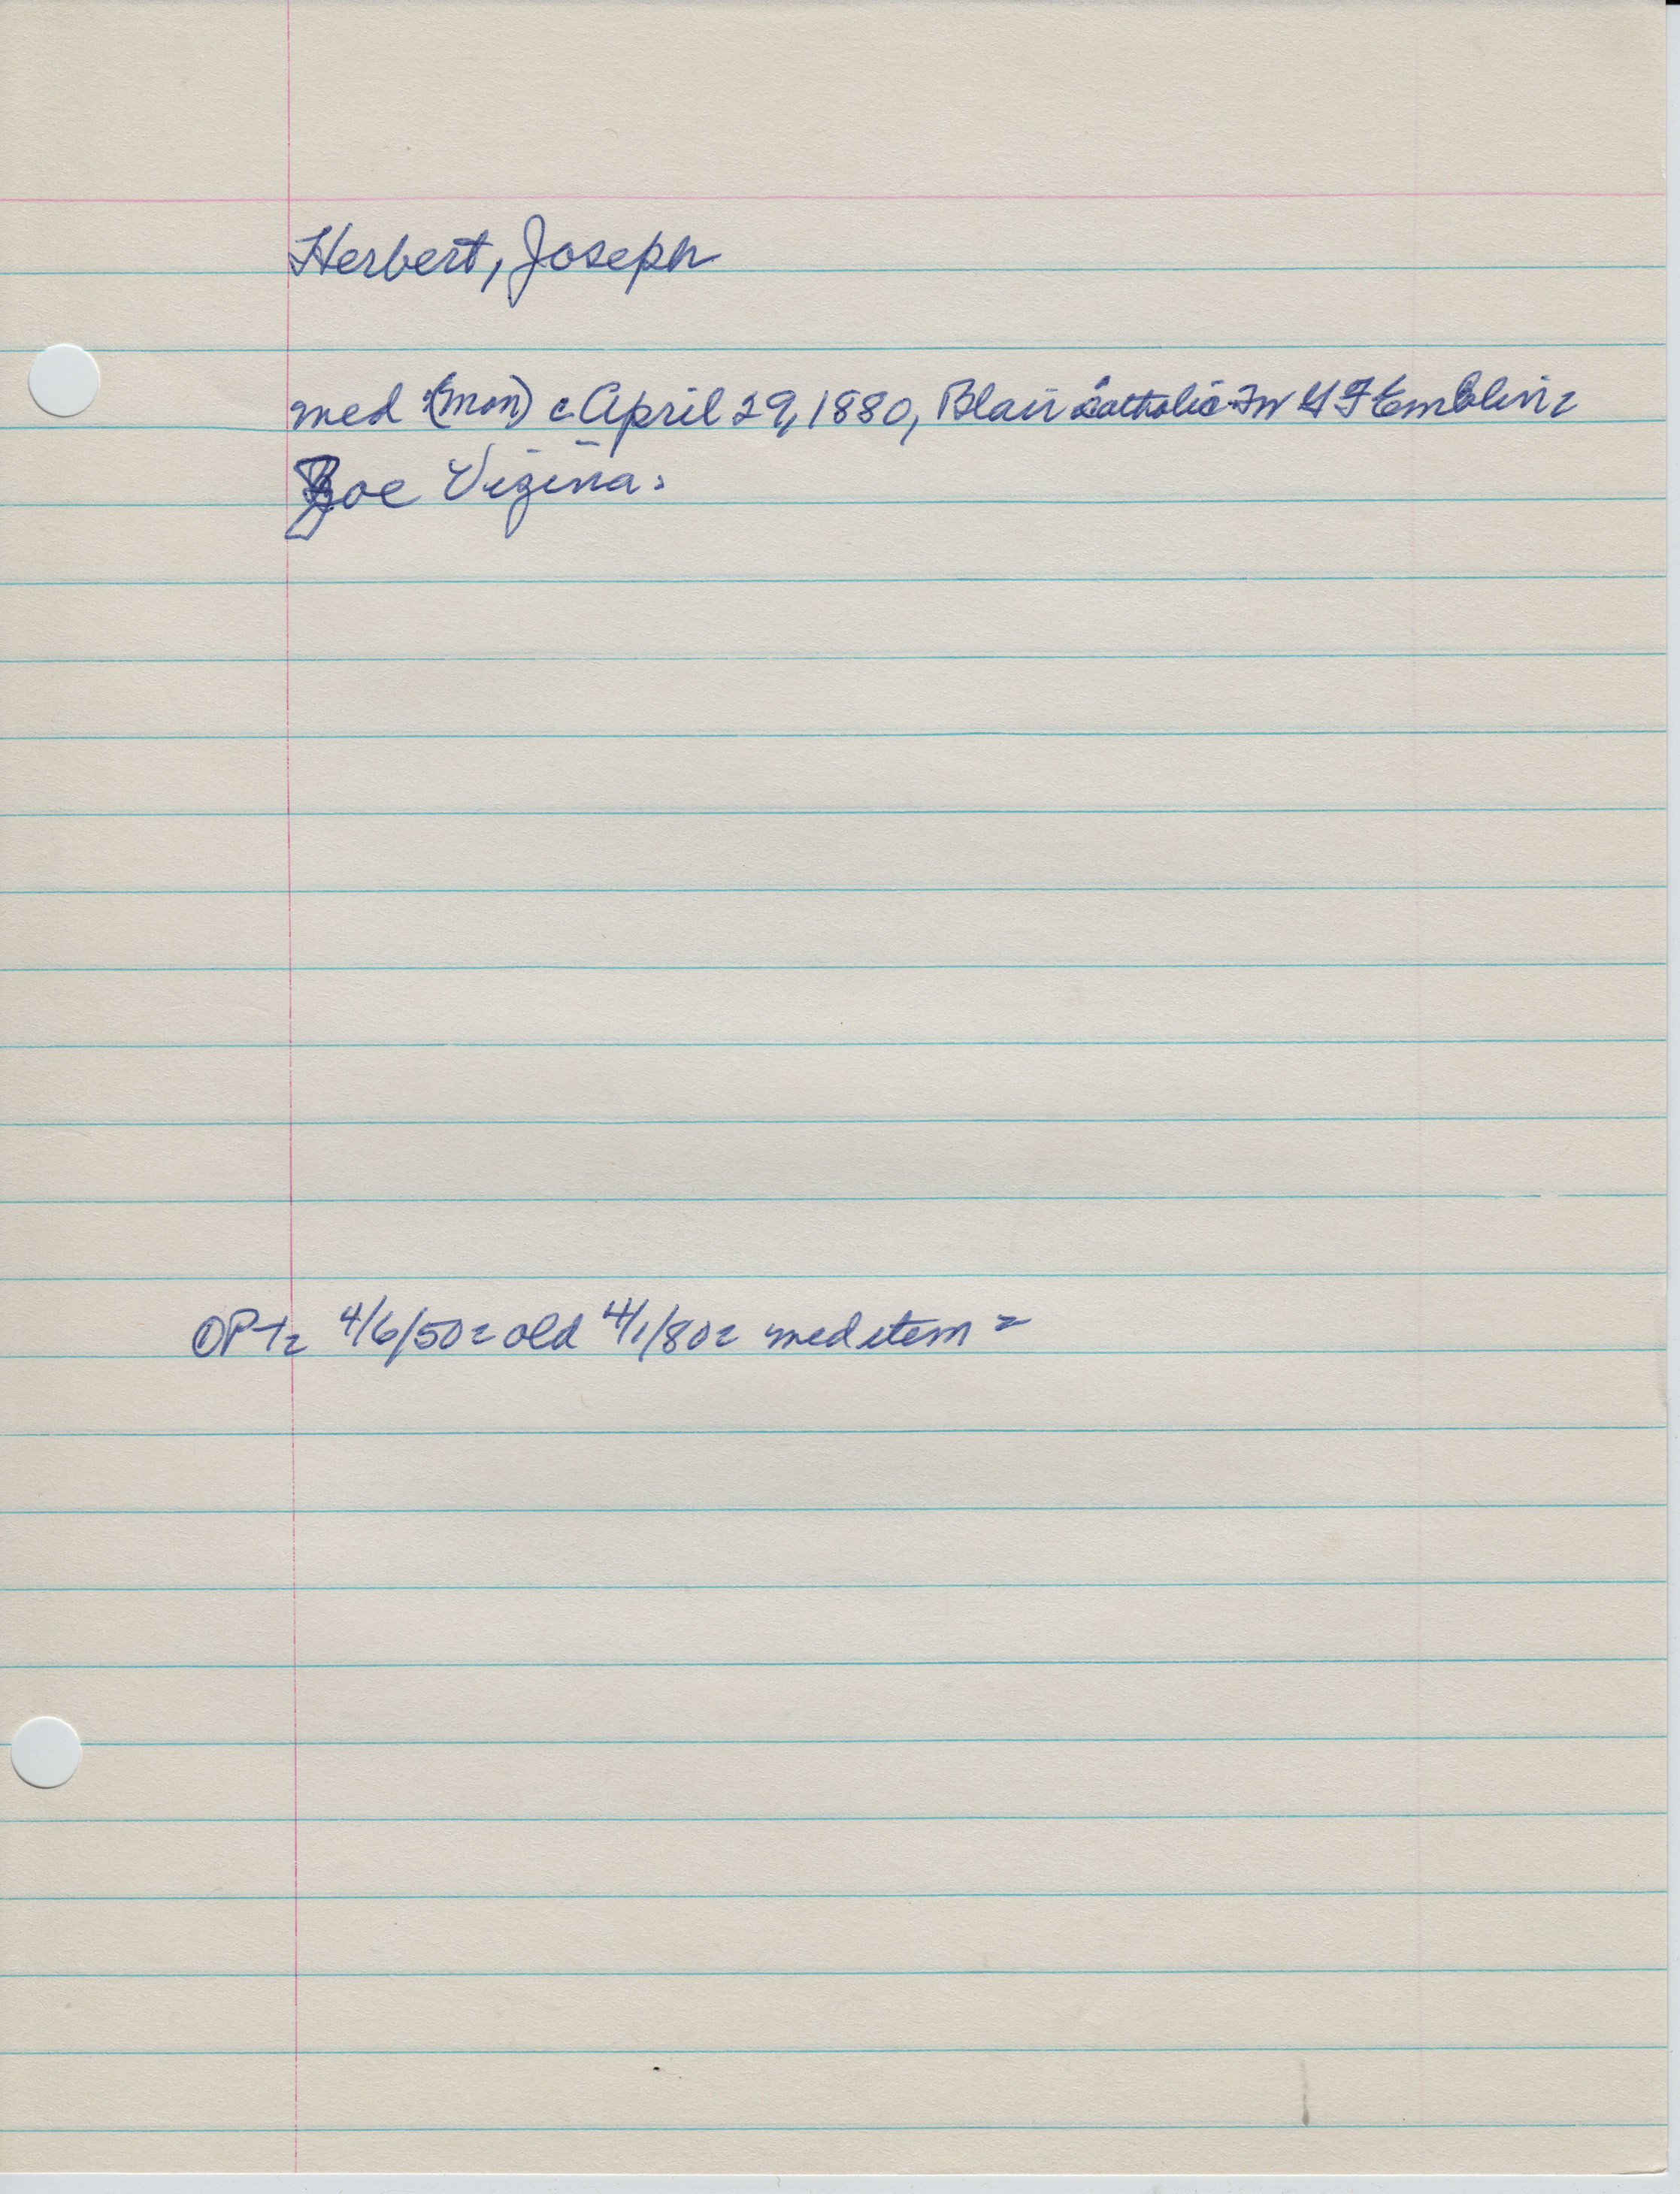 Herbert, Joseph
med (mon) c April 29, 1880, Blair Catholic In G F Emblin =
Zoe Vizina.
4/6/50 = old 4/1/80 = med item =